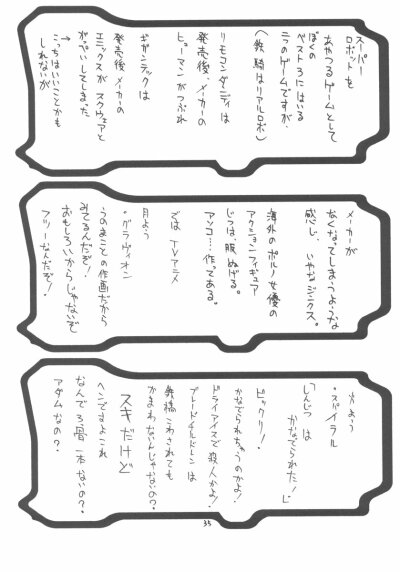 スーパー
ロボットを
あやつるゲームとして
ぼくの
ベスト3にはいる
二つのゲームですが、
(鉄騎はリアルロボ)
リモコンダンディは
発売後、メーカーの
ヒューマンがつぶれ
ギガンテックは
発売後メーカーの
エニックスがスクウェアと
がっぺいしてしまった
→
こっちはいいことかも
しれないが
メーカーが
なくなってしまうような
感じ、いやなジンクス。
海外のポルノ女優の
アクションフィギュア
じつは、服ぬげる。
アソコ…作ってある。
では TVアニメ
月よう
・グラヴィオン
うのまことの作画だから
みてるんだぞ!
おもしろいからじゃないぞ
フツーなんだぞ!
火よう
・スパイラル
「しんじつは
かなでられた!」
ビックリ!
かなでられちゃうのかよ!
ドライアイスで殺人かよ!
ブレードチルドレンは
鉄橋こわされても
かまわないんじゃないの?
スキだけど
ヘンですよこれ
なんでろ骨一本ないの?
アダムなの?
35